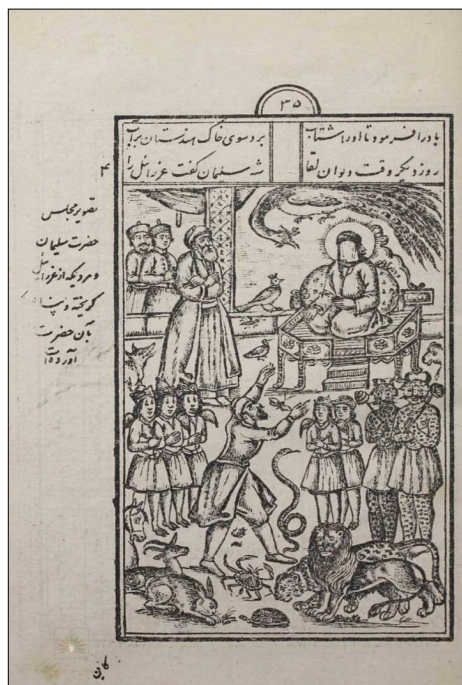 ۳۵
باد را فرمود تا او را شتاب برد سوی خاک هندستان بر آب
روز دیگر وقت دیوان لقا شه سلیمان گفت عزرائیل را
۴
تصویر مجلس
حضرت سلیمان
و مردیکه از عزرائیل
گریخته و پناه
بآن حضرت
آورده است